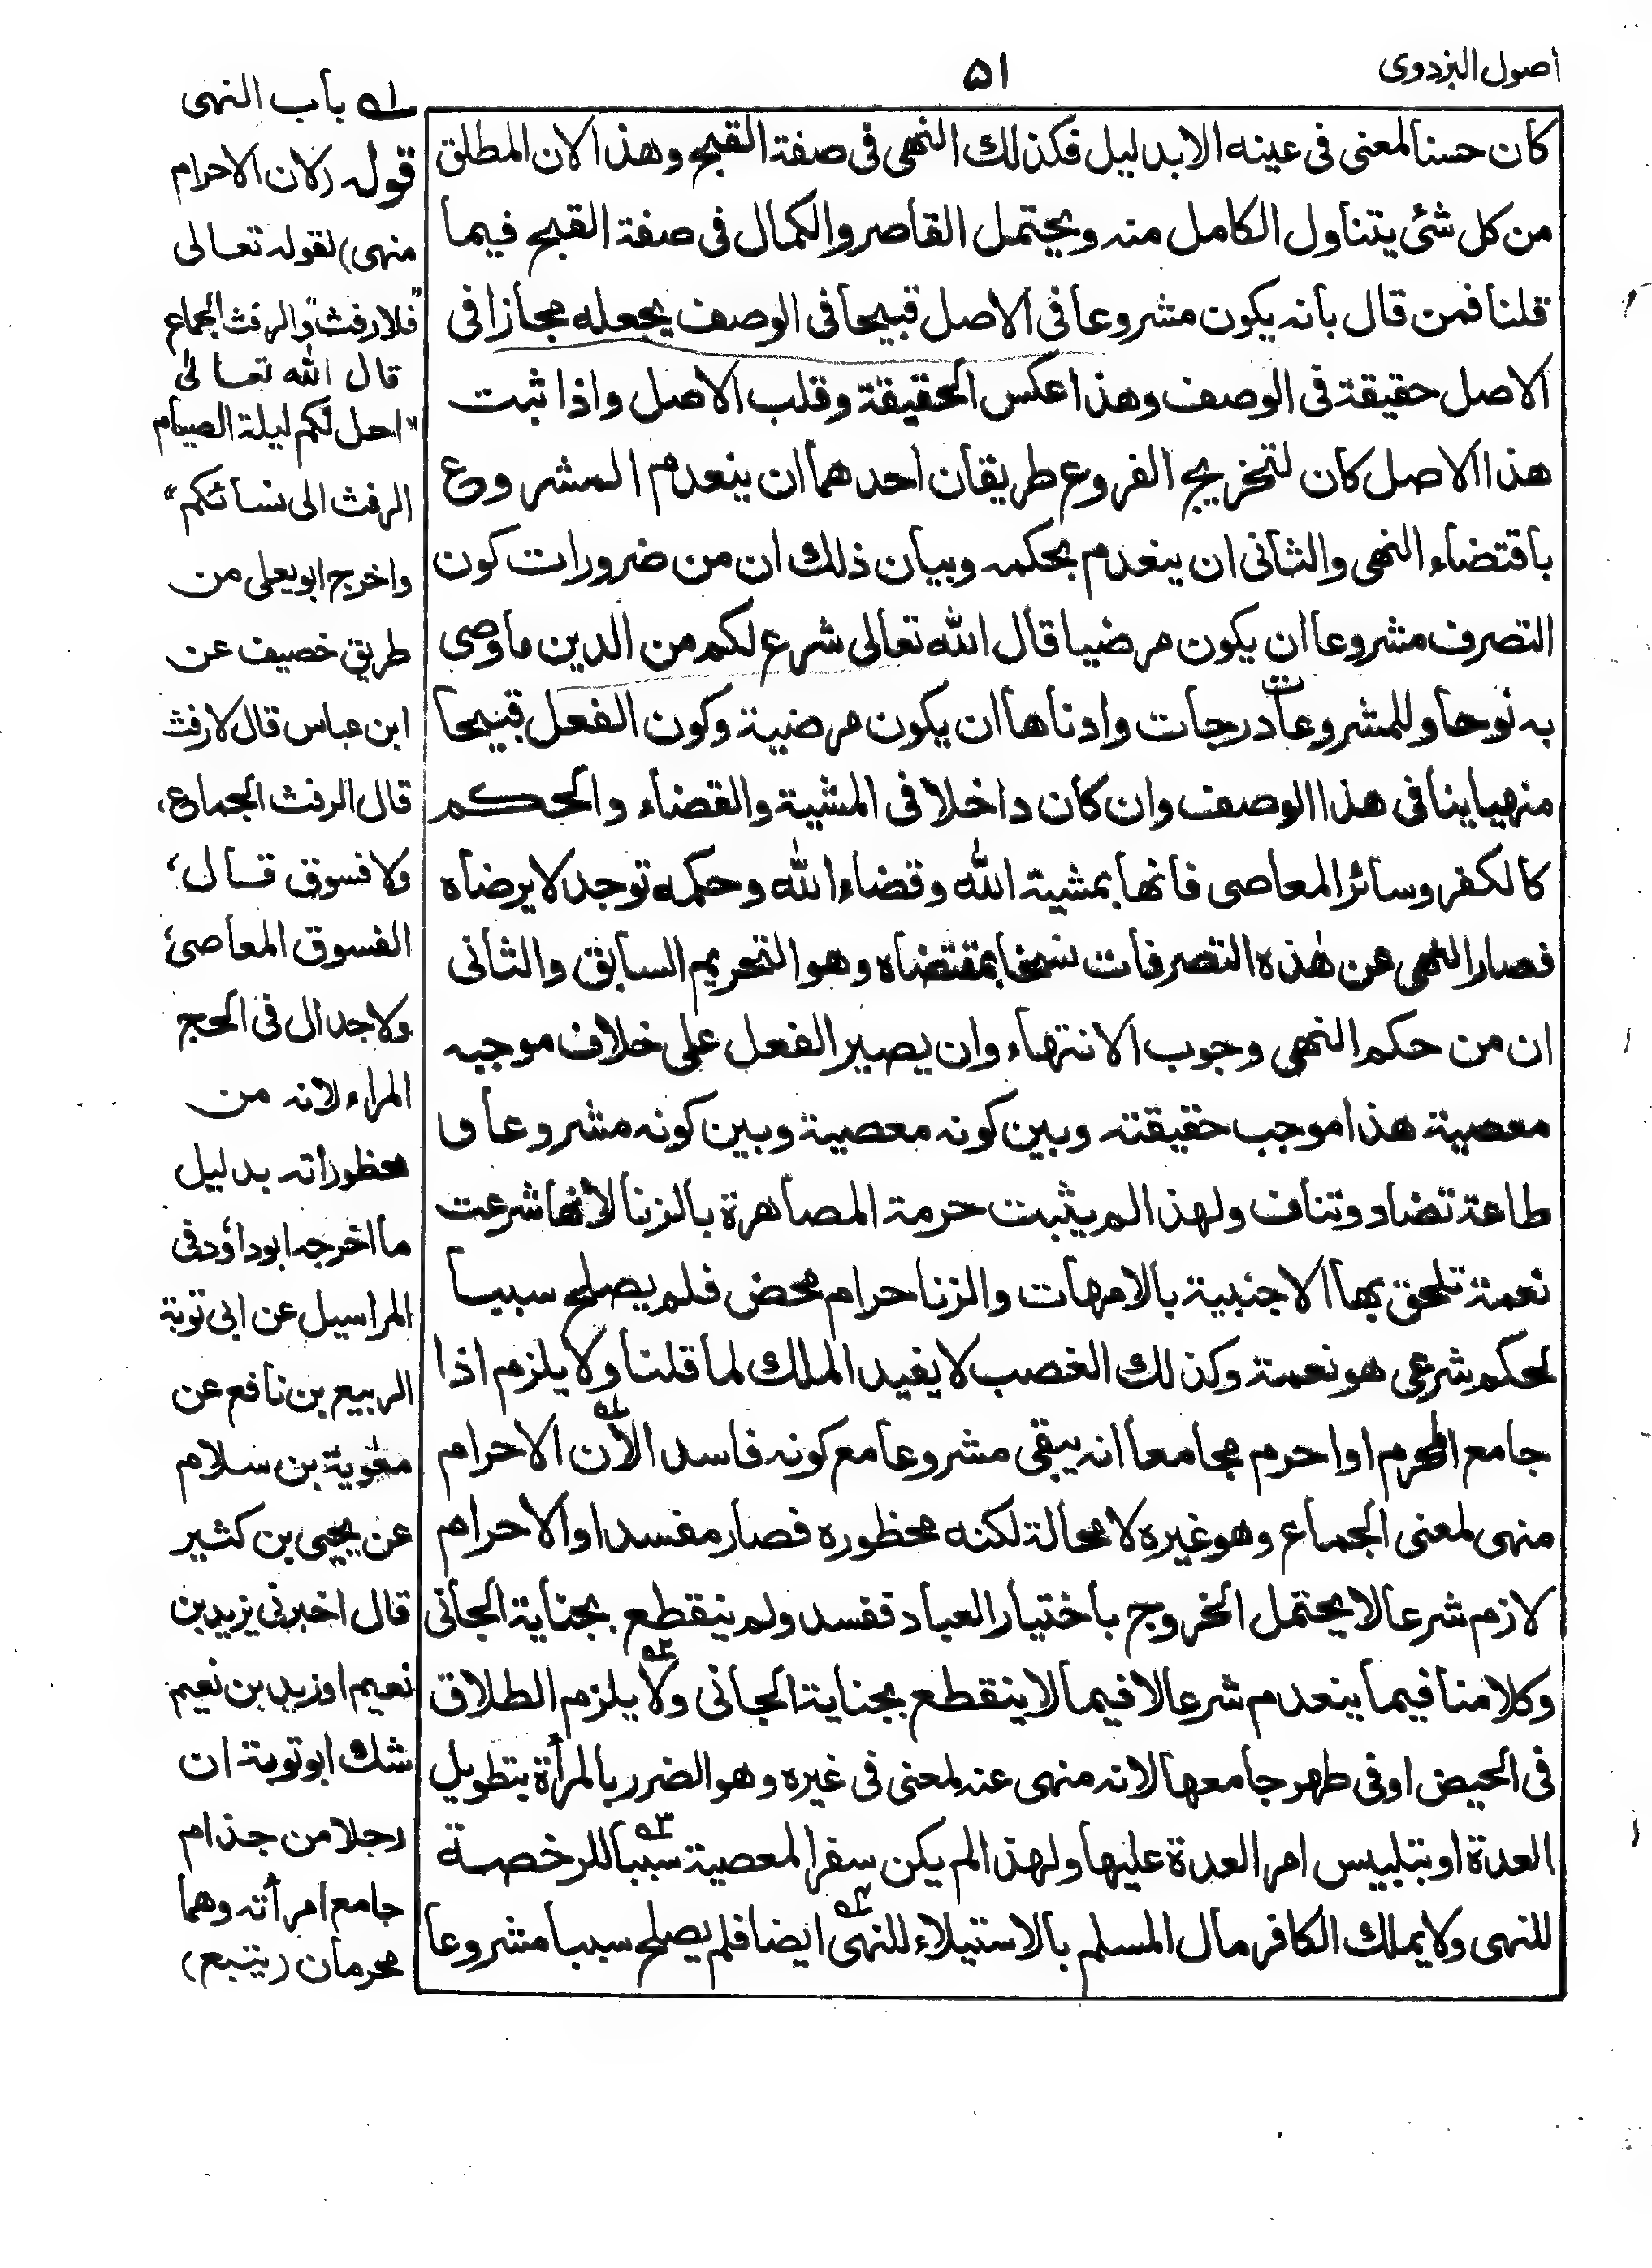 اصول البزدوی
۵۱
كان حسنا لمعنى فى عينه الا بدليل فكذلك النهى فى صفة القبح وهذا لان المطلق
من كل شئ يتناول الكامل منه ويحتمل القاصر والكمال فى صفة القبح فيما
قلنا فمن قال بانه يكون مشروعا فى الاصل قبيحا فى الوصف يجعله مجازا فى
الاصل حقيقة فى الوصف وهذا عكس الحقيقة وقلب الاصل واذا ثبت
هذا الاصل كان لتخريج الفروع طريقان احدهما ان ينعدم المشروع
باقتضاء النهى والثانى ان ينعدم بحكمه وبيان ذلك ان من ضرورات كون
التصرف مشروعا ان يكون مرضيا قال الله تعالى شرع لكم من الدين ما وصى
به نوحا وللمشروعات درجات وادناها ان يكون مرضية وكون الفعل قبيحا
منهيا ينافى هذا الوصف وان كان داخلا فى المشية والقضاء والحكم
كالكفر وسائر المعاصى فانها بمشية الله وقضاء الله وحكمه توجد لا يرضاه
فصار النهى عن هذه التصرفات نسخا بمقتضاه وهو التحريم السابق والثانى
ان من حكم النهى وجوب الانتهاء وان يصير الفعل على خلاف موجبه
معصية هذا موجب حقيقته وبين كونه معصية وبين كونه مشروعا و
طاعة تضاد وتناف ولهذا لم يثبت حرمة المصاهرة بالزنا لانها شرعت
نعمة تلحق بها الاجنبية بالامهات والزنا حرام محض فلم يصلح سببا
لحكم شرعى هو نعمة وكذلك الغصب لا يفيد الملك لما قلنا ولا يلزم اذا
جامع المحرم او احرم مجامعا انه يبقى مشروعا مع كونه فاسدا لان الاحرام
منهى لمعنى الجماع وهو غيره لا محالة لكنه محظوره فصار مفسدا والاحرام
لازم شرعا لا يحتمل الخروج باختيار العباد ففسد ولم ينقطع بجناية الجانى
وكلامنا فيما ينعدم شرعا لا فيما لا ينقطع بجناية الجانى ولا يلزم الطلاق
فى الحيض او فى طهر جامعها لانه منهى عنه لمعنى فى غيره وهو الضرر بالمرأة بتطويل
العدة او بتلبيس امر العدة عليها ولهذا لم يكن سفر المعصية سببا للرخصة
للنهى ولا يملك الكافر مال المسلم بالاستيلاء للنهى ايضا فلم يصلح سببا مشروعا
ا؎ باب النهى
قوله (لان الاحرام
منهى) لقوله تعالى
"فلا رفث" والرفث الجماع
قال الله تعالى
"احل لكم ليلة الصيام
الرفث الى نسائكم"
واخرج ابو يعلى من
طريق خصيف عن
ابن عباس قال لا رفث
قال الرفث الجماع،
ولا فسوق قال،
الفسوق المعاصى،
ولا جدال فى الحج
المراء لانه من
محظوراته بدليل
ما اخرجه ابوداؤد فى
المراسيل عن ابى توبة
الربيع بن نافع عن
معوية بن سلام
عن يحيى بن كثير
قال اخبرنى يزيد بن
نعيم او زيد بن نعيم
شك ابو توبة ان
رجلا من جذام
جامع امرأته وهما
محرمان (يتبع)